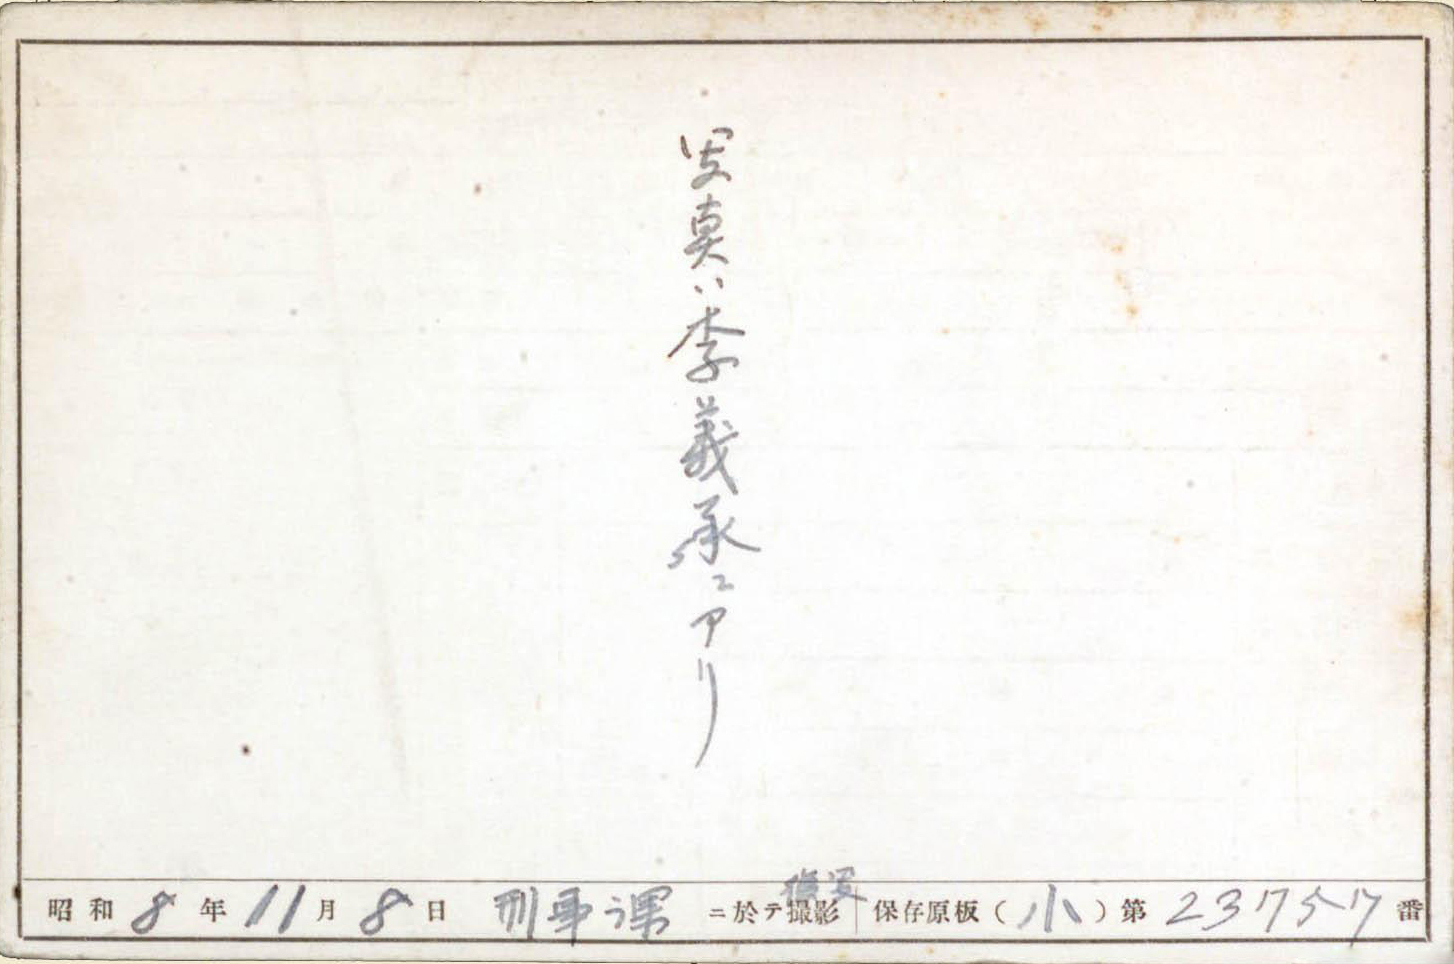 写真ハ李義承ニアリ
複写
昭和8年11月8日 刑事課ニ於テ撮影 保存原板（小）第23757番